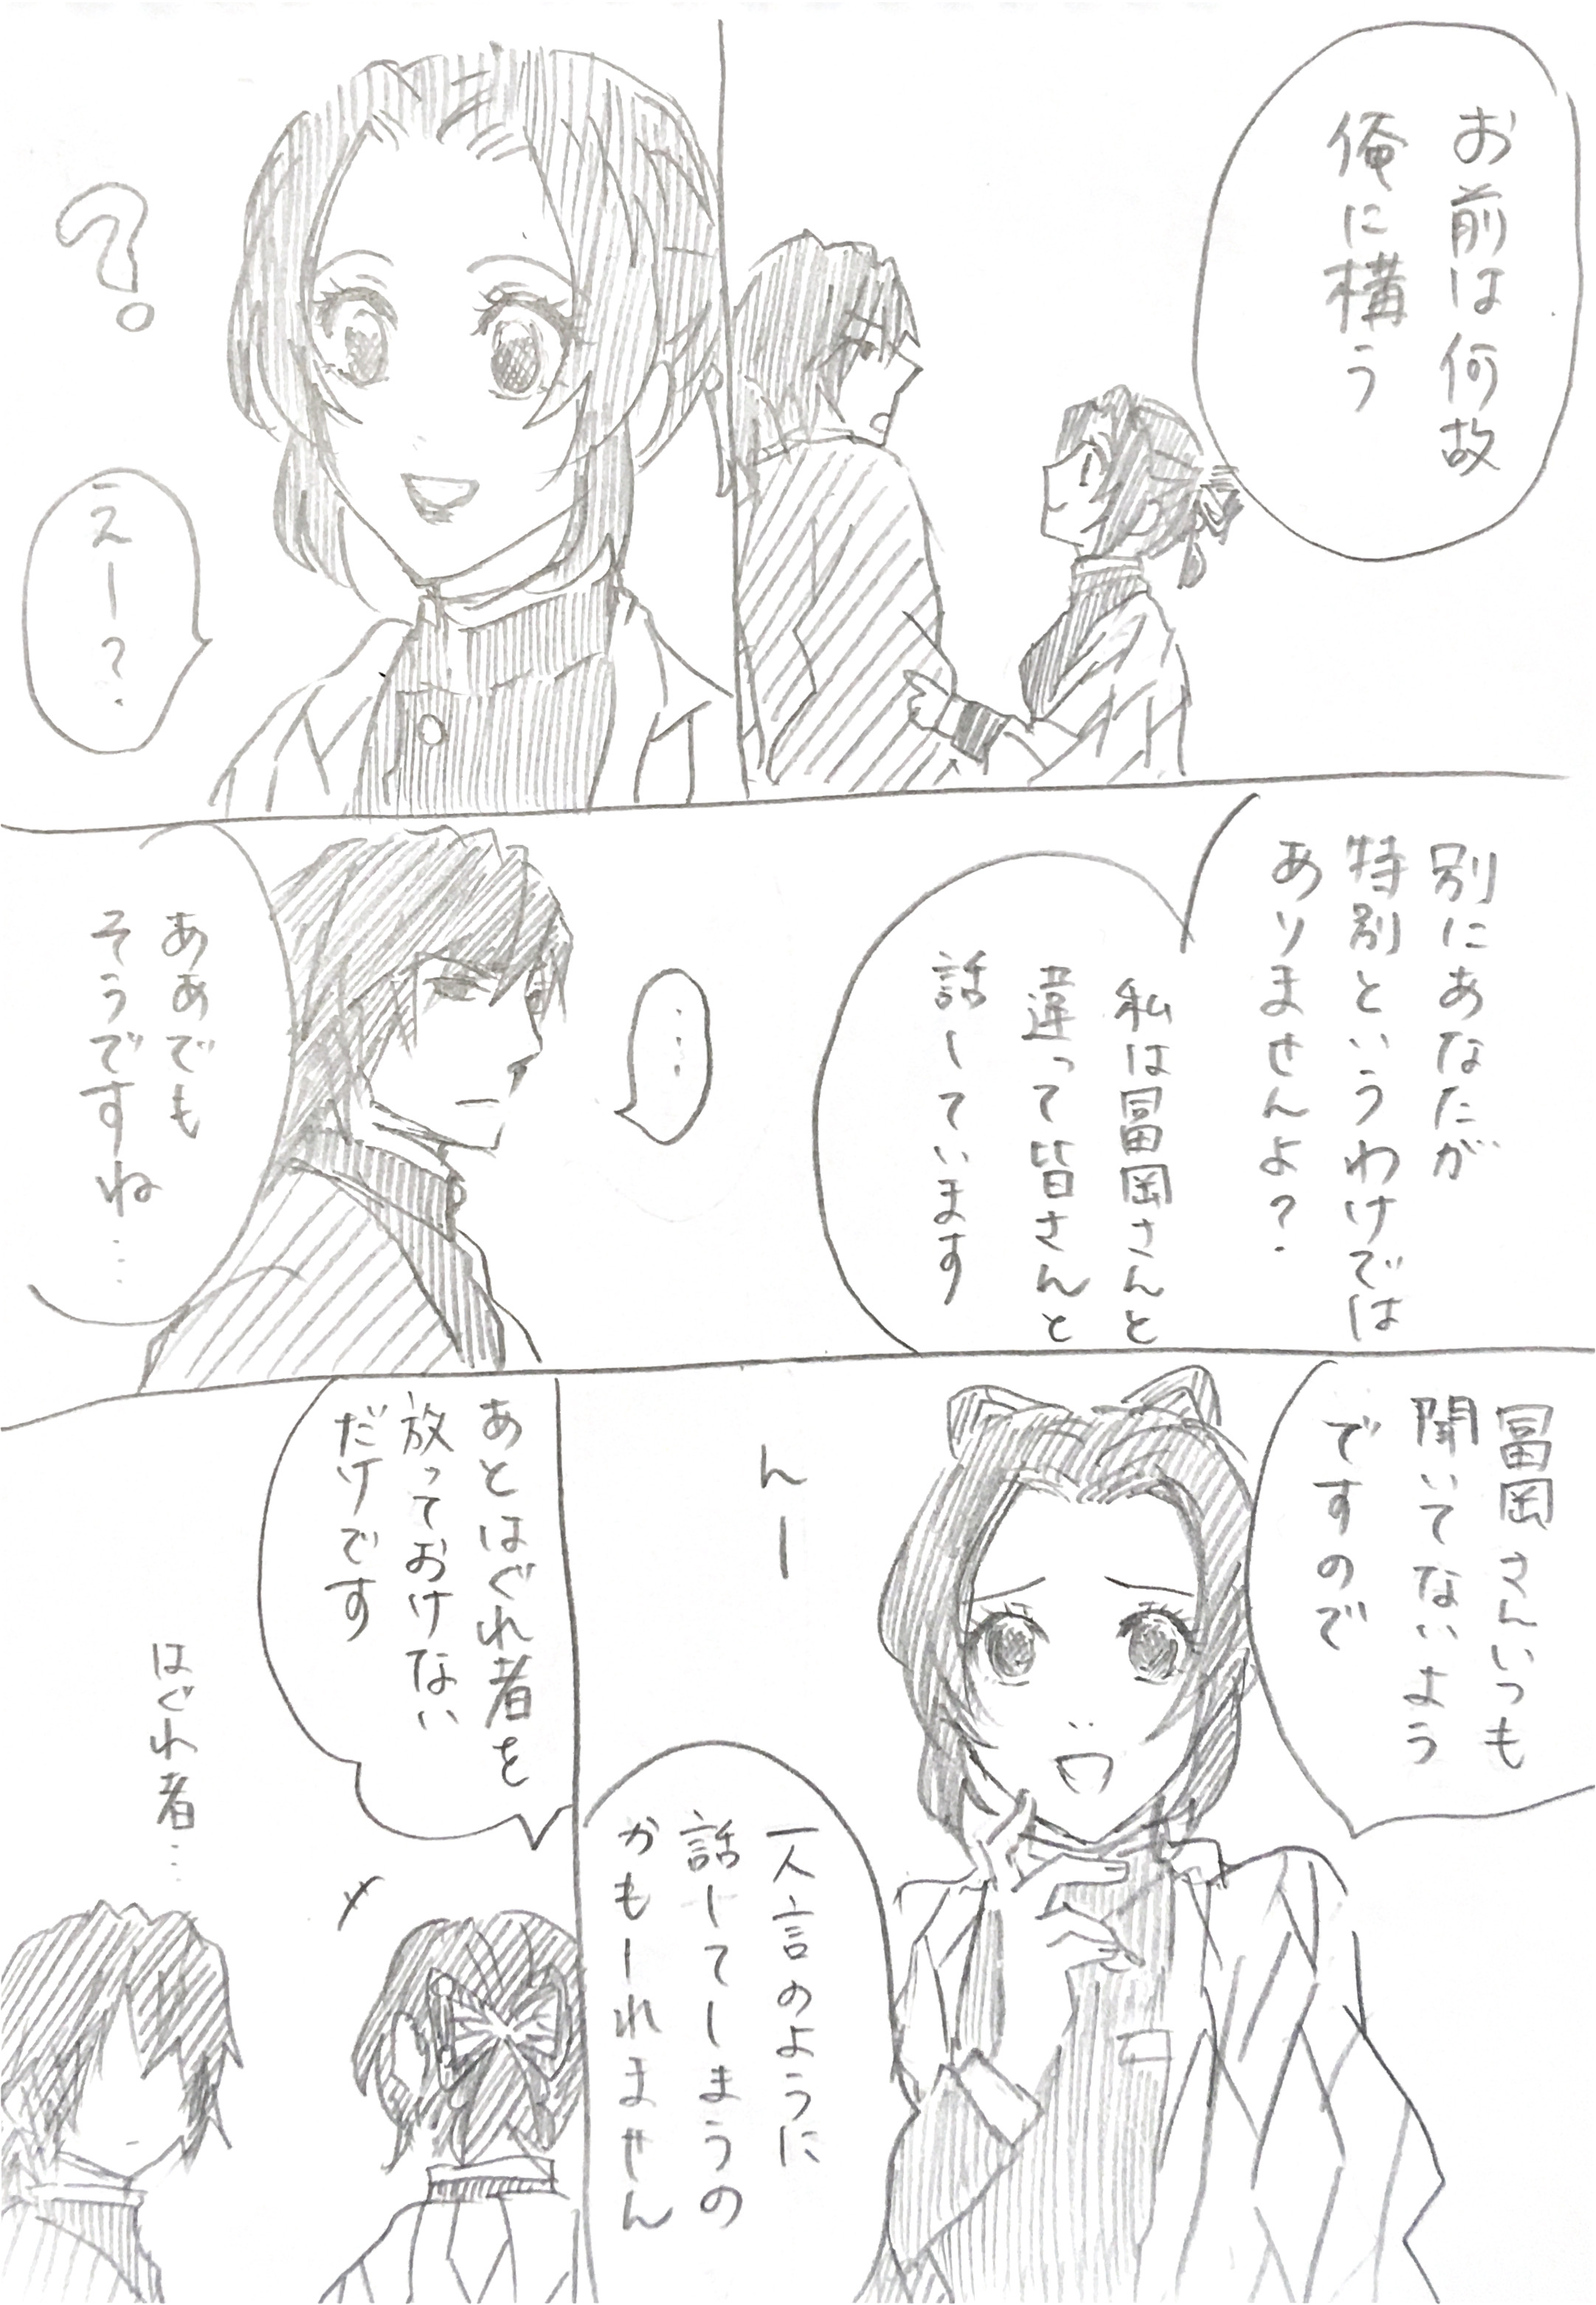 お前は何故
俺に構う
?
えー?
別にあなたが
特別というわけでは
ありませんよ?
私は冨岡さんと
違って皆さんと
話しています
…
ああでも
そうですね…
冨岡さんいつも
聞いてないよう
ですので
んー
一人言のように
話してしまうの
かもしれません
あとはぐれ者を
放っておけない
だけです
はぐれ者…